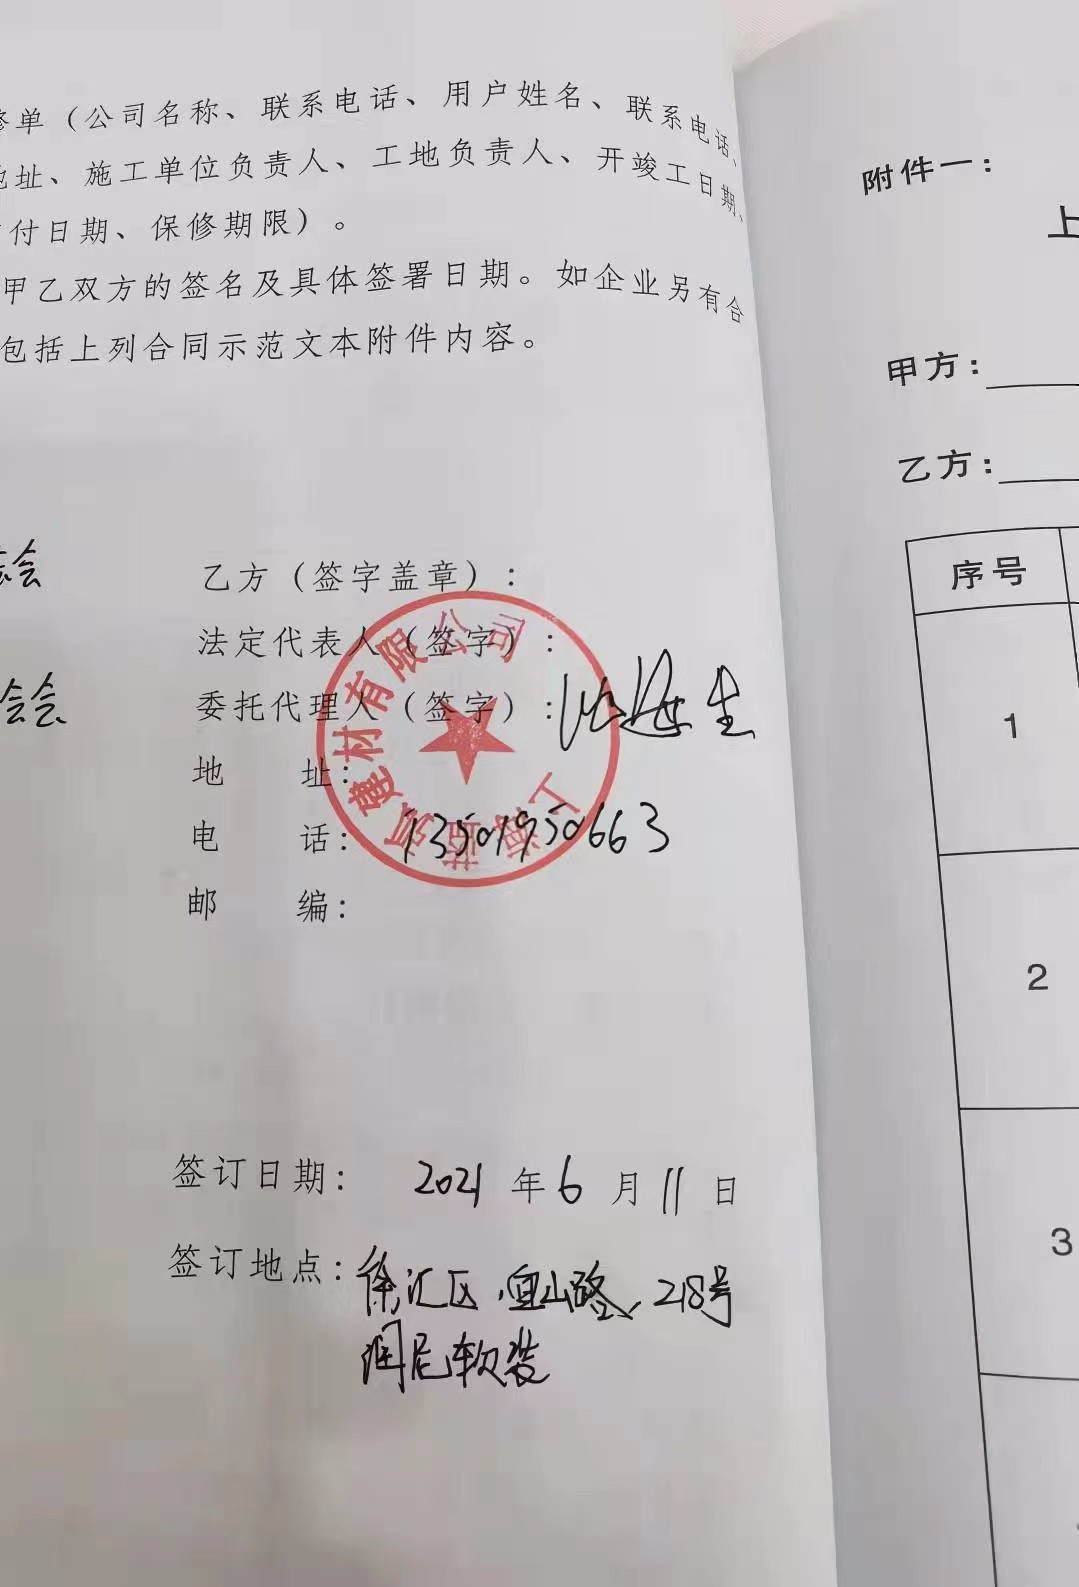 修单（公司名称、联系电话、用户姓名、联系电话、
地址、施工单位负责人、工地负责人、开竣工日期、
付日期、保修期限）。
甲乙双方的签名及具体签署日期。如企业另有合
包括上列合同示范文本附件内容。
会
会会
乙方（签字盖章）：
法定代表人（签字）：
委托代理人（签字）：
地 址：
电 话：13501950663
邮 编：
上海蓝 建材有限公司
签订日期： 2021 年 6 月 11 日
签订地点：徐汇区宜山路218号
润尼软装
附件一：
上
甲方：
乙方：
序号
1
2
3